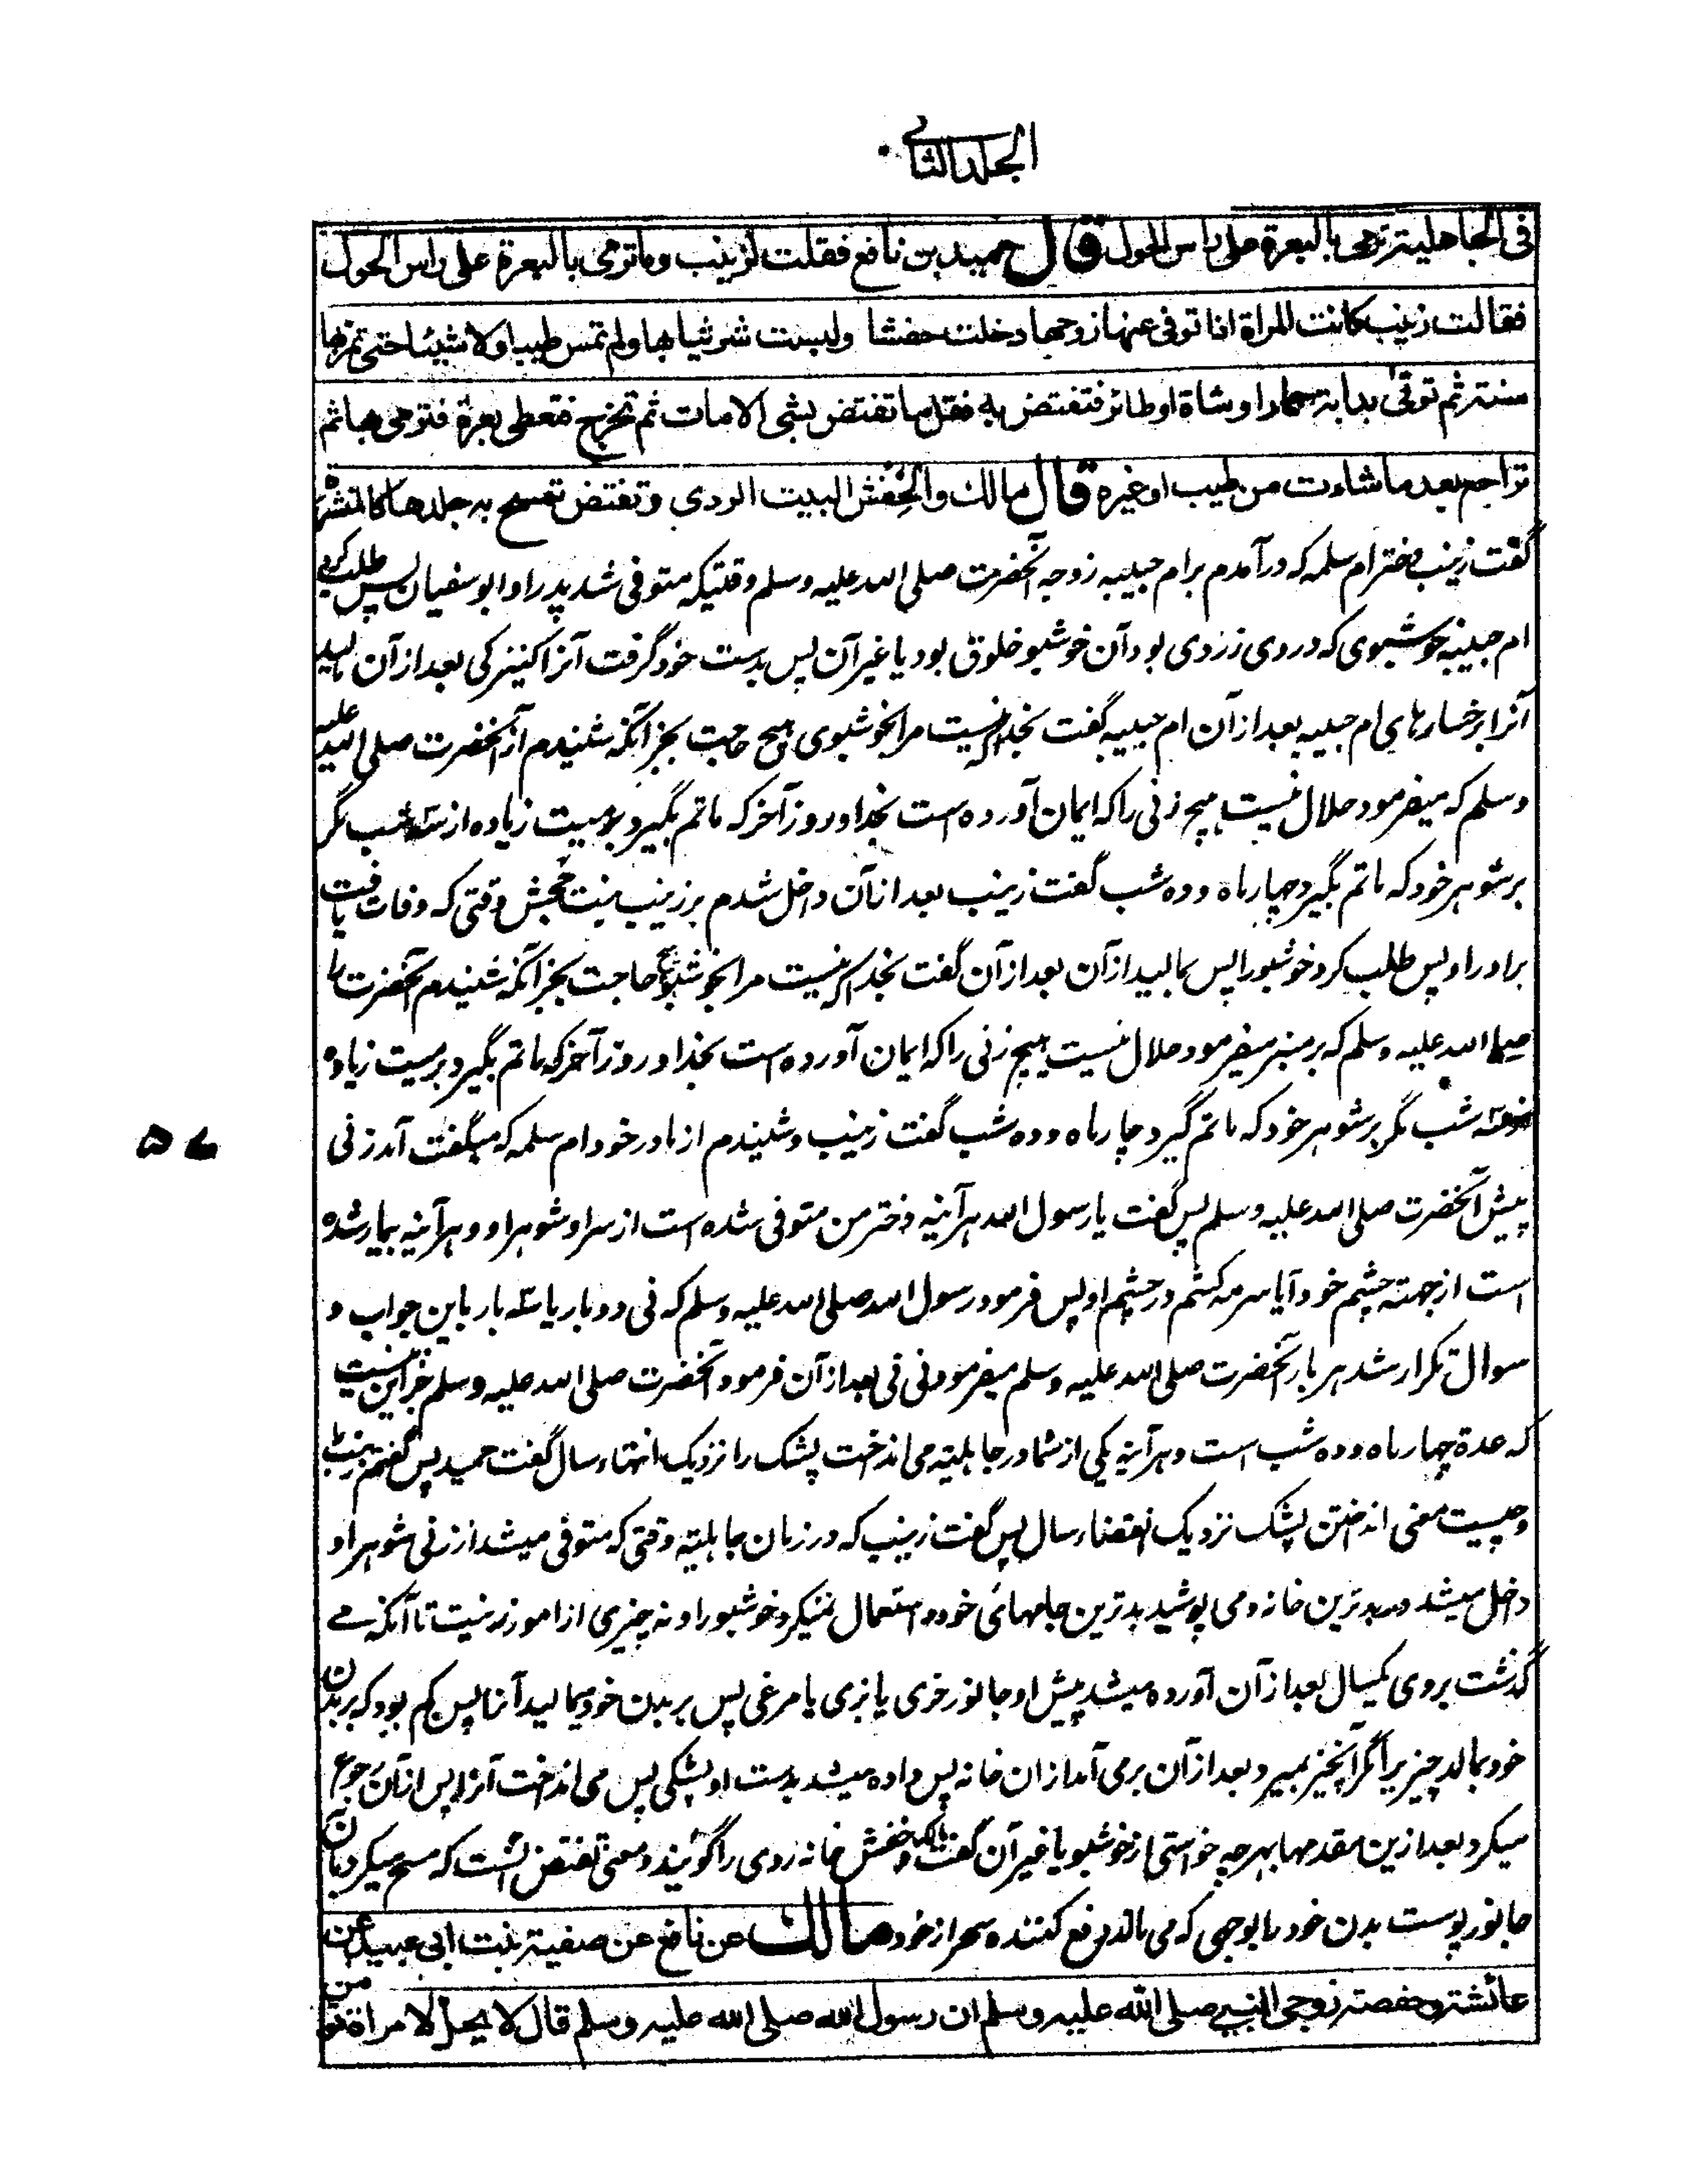 الجلد الثانی
فی الجاهلیة ترمی بالبعرة علی راس الحول قال حمید بن نافع فقلت لزینب وما ترمی بالبعرة علی راس الحول
فقالت زینب کانت المراة اذا توفی عنها زوجها دخلت حفشا ولبست شر ثیابها ولم تمس طیبا ولا شیئا حتی تمر بها
سنة ثم توتی بدابة حمار او شاة او طائر فتفتض به فقلما تفتض بشی الا مات ثم تخرج فتعطی بعرة فترمی بها ثم
تراجع بعد ما شاءت من طیب او غیره قال مالک والحفش البیت الردی وتفتض تمسح به جلدها کالنشرة
گفت زینب دختر ام سلمه که درآمدم بر ام حبیبه زوجه آنحضرت صلی الله علیه وسلم وقتیکه متوفی شد پدر او ابو سفیان پس طلب کرد
ام حبیبه خوشبوی که در وی زردی بود آن خوشبو خلوق بود یا غیر آن پس بدست خود گرفت آنرا کنیزکی بعد ازان مالید
آنرا بر رخسارهای ام حبیبه بعد ازان ام حبیبه گفت بخدا که نیست مرا بخوشبوی هیچ حاجت بجز آنکه شنیدم از آنحضرت صلی الله علیه
وسلم که میفرمود حلال نیست هیچ زنی را که ایمان آورده است بخدا و روز آخر که ماتم بگیرد بر میت زیاده از سه شب مگر
بر شوهر خود که ماتم بگیرد چهار ماه و ده شب گفت زینب بعد ازان داخل شدم بر زینب بنت جحش وقتی که وفات یافت
برادر او پس طلب کرد خوشبو را پس بمالید ازان بعد ازان گفت بخدا که نیست مرا بخوشبوی حاجت بجز آنکه شنیدم آنحضرت را
صلی الله علیه وسلم که بر منبر میفرمود حلال نیست هیچ زنی را که ایمان آورده است بخدا و روز آخر که ماتم بگیرد بر میت زیاده
از سه شب مگر بر شوهر خود که ماتم گیرد چار ماه و ده شب گفت زینب و شنیدم از مادر خود ام سلمه که میگفت آمد زنی
پیش آنحضرت صلی الله علیه وسلم پس گفت یا رسول الله هر آئینه دختر من متوفی شده است از سر او شوهر او و هر آئینه بیمار شده
است از جهته چشم خود آیا سرمه کشم در چشم او پس فرمود رسول الله صلی الله علیه وسلم که نی دو بار یا سه بار باین جواب و
سوال تکرار شد هر بار آنحضرت صلی الله علیه وسلم میفرمود نی نی بعد ازان فرمود آنحضرت صلی الله علیه وسلم جز این نیست
که عدة چهار ماه و ده شب است و هر آینه یکی از شما در جاهلیته می انداخت پشک را نزدیک انتهاء سال گفت حمید پس گفتم زینب را
و چیست معنی انداختن پشک نزدیک انقضاء سال پس گفت زینب که در زمان جاهلیته وقتی که متوفی میشد از زنی شوهر او
داخل میشد در بدترین خانه و می پوشید بدترین جامهائی خود و استعمال نمیکرد خوشبو را و نه چیزی از امور زینت تا آنکه می
گذشت بروی یکسال بعد ازان آورده میشد پیش او جانور خری یا بزی یا مرغی پس بر بدن خود میمالید آنرا پس کم بود که بر بدن
خود بمالد چیزیرا مگر آنچیز بمیرد بعد ازان برمی آمد ازان خانه پس داده میشد بدست او پشکی پس می انداخت آنرا پس ازان رجوع
میکرد بعد ازین مقدمها بهر چه خواستی از خوشبو یا غیر آن گفت مالک و حفش خانه ردی را گویند و معنی تفتض آنست که مسح میکرد بآن
جانور پوست بدن خود را بوجهی که می مالند رفع کننده سحر از خود مالک عن نافع عن صفیة بنت ابی عبید عن
عائشة وحفصة زوجی النبی صلی الله علیه وسلم ان رسول الله صلی الله علیه وسلم قال لا یحل لامراة تؤمن
۵۷